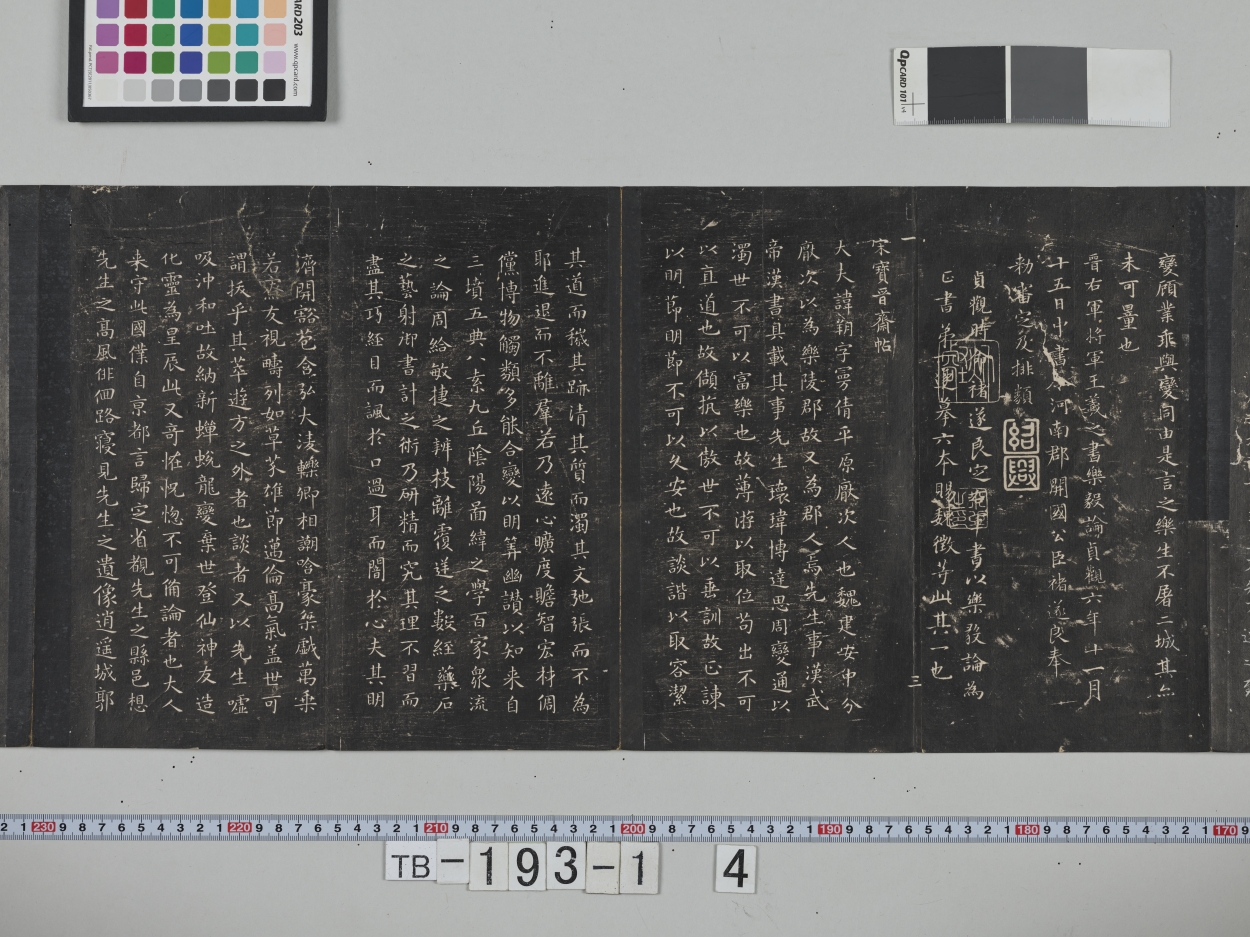 變廢業乖與變同由是言之樂生不屠二城其亦
未可量也
晉右軍將軍王羲之書樂毅論貞觀六年十一月
十五日中書令河南郡開國公臣褚遂良奉
勑審定及排類
紹興
貞觀時褚遂良定右軍書以樂毅論為
正書第一摹六本賜魏徵等此其一也
三
宋寶晉齋帖
大夫諱朔字曼倩平原厭次人也魏建安中分
厭次以為樂陵郡故又為郡人焉先生事漢武
帝漢書具載其事先生瓌瑋博達思周變通以
濁世不可以富樂也故薄遊以取位苟出不可
以直道也故傲抗以傲世不可以垂訓故正諫
以明節明節不可以久安也故談諧以取容潔
其道而穢其跡清其質而濁其文弛張而不為
耶進退而不離羣若乃遠心曠度贍智宏材倜
儻博物觸類多能合變以明筭幽讚以知来自
三墳五典八索九丘陰陽圖緯之學百家衆流
之論周給敏捷之辨枝離覆逆之數經藥石
之藝射御書計之術乃研精而究其理不習而
盡其巧經目而諷於口過耳而闇於心夫其明
濟開豁苞含弘大淩轢卿相謿哈豪桀戲萬乗
若寮友視疇列如草芥雄節邁倫高氣蓋世可
謂拔乎其萃遊方之外者也談者又以先生噓
吸沖和吐故納新蟬蛻龍變棄世登仙神友造
化靈為星辰此又奇怪怳惚不可備論者也大人
来守此國僕自京都言歸定省覩先生之縣邑想
先生之高風俳佪路寢見先生之遺像逍遥城郭
QPCARD 203
www.qpcard.com
QPCARD 101 v4
TB-193-1 4